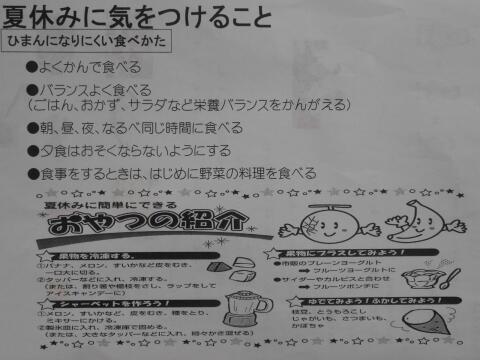 夏休みに気をつけること
ひまんになりにくい食べかた
●よくかんで食べる
●バランスよく食べる
(ごはん、おかず、サラダなど栄養バランスをかんがえる)
●朝、昼、夜、なるべく同じ時間に食べる
●夕食はおそくならないようにする
●食事をするときは、はじめに野菜の料理を食べる
夏休みに簡単にできる
おやつの紹介
果物を冷凍する。
①バナナ、メロン、すいかなど皮をむき、
一口大に切る。
②タッパーなどに入れ、冷凍する。
(または、割り箸や楊枝をさし、ラップをして
アイスキャンデーに)
シャーベットを作ろう!
①メロン、すいかなど、皮をむき、種をとり、
ミキサーにかける。
②製氷皿に入れ、冷凍庫で固める。
(または、大きなタッパーなどに入れ、時々かき混ぜる)
果物にプラスしてみよう!
●市販のプレーンヨーグルト
➡ フルーツヨーグルトに
●サイダーやカルピスと合わせ
➡ フルーツポンチに
ゆでてみよう!ふかしてみよう!
枝豆、とうもろこし
じゃがいも、さつまいも、
かぼちゃ